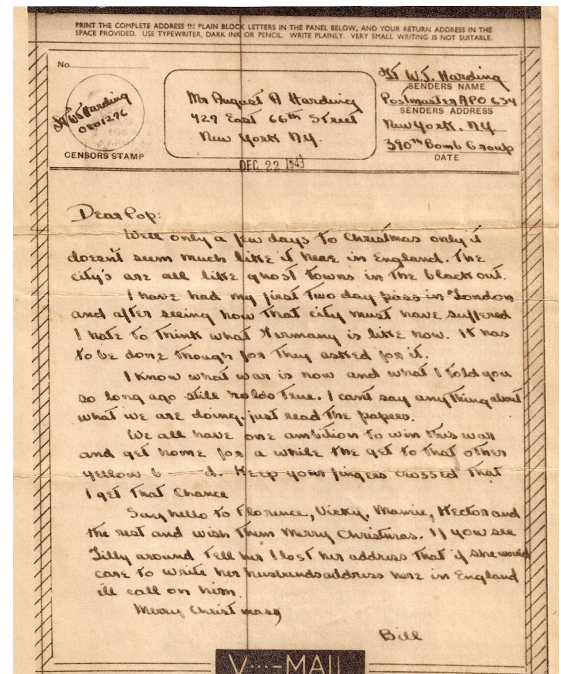 PRINT THE COMPLETE ADDRESS IN PLAIN BLOCK LETTERS IN THE PANEL BELOW, AND YOUR RETURN ADDRESS IN THE
SPACE PROVIDED. USE TYPEWRITER, DARK INK OR PENCIL. WRITE PLAINLY. VERY SMALL WRITING IS NOT SUITABLE.
No.
Lt W.J. Harding
CENSORS STAMP
Mr August A Harding
429 East 66th Street
New York N.Y.
Lt W.J. Harding
SENDERS NAME
Postmaster APO 634
SENDERS ADDRESS
New York. N.Y.
390th Bomb Group
DATE
DEC 22 1943
Dear Pop:
Well only a few days to Christmas only it
doesn't seem much like it here in England. The
city's are all like ghost towns in the black out.
I have had my first two day pass in London
and after seeing how that city must have suffered
I hate to think what Germany is like now. It has
to be done though for they asked for it.
I know what war is now and what I told you
so long ago still holds true. I can't say anything about
what we are doing, just read the papers.
We all have one ambition to win this war
and get home for a while the get to that other
yellow b——d. Keep your fingers crossed that
I get that chance
Say hello to Florence, Vicky, Mamie, Hector and
the rest and wish them Merry Christmas. If you see
Tilly around tell her I lost her address that if she would
care to write her husbands address here in England
ill call on him.
Merry Christmas,
Bill
V···-MAIL